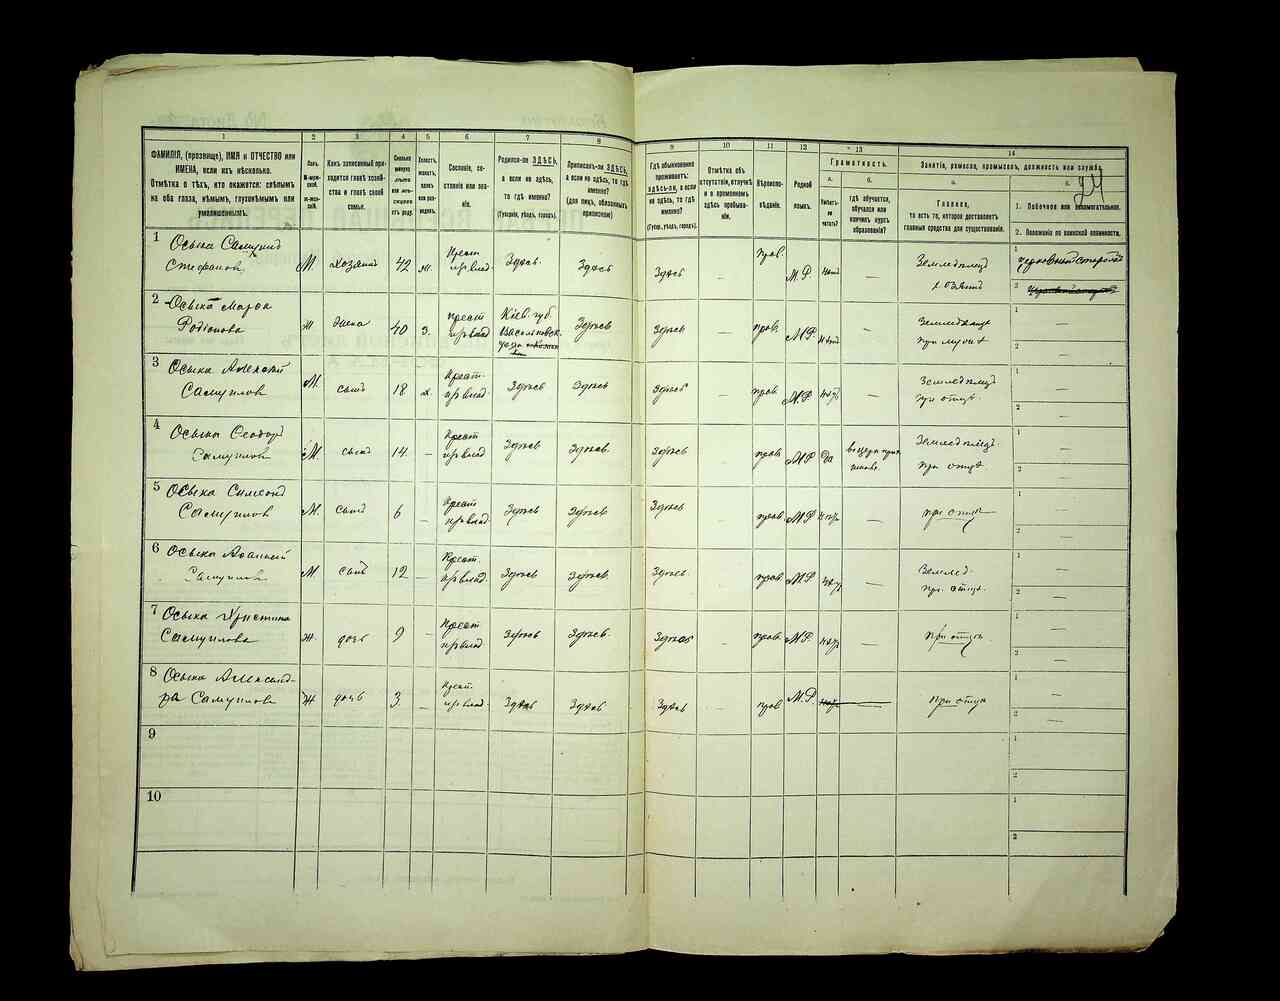 1 2 3 4 5 6 7 8
9 10 11 12 13 14
ФАМИЛІЯ, (прозвище), ИМЯ и ОТЧЕСТВО или
ИМЕНА, если ихъ нѣсколько.
Отмѣтка о тѣхъ, кто окажется: слѣпымъ
на оба глаза, нѣмымъ, глухонѣмымъ или
умалишеннымъ.
Полъ.
М-мужской.
Ж-женскій.
Какъ записанный приходится главѣ хозяйства и главѣ своей семьи.
Сколько минуло лѣтъ или мѣсяцевъ отъ роду.
Холостъ, женатъ, вдовъ или разведенъ.
Сословіе, состояніе или званіе.
Родился-ли ЗДѢСЬ,
а если не здѣсь,
то гдѣ именно?
(Губернія, уѣздъ, городъ).
Приписанъ-ли ЗДѢСЬ,
а если не здѣсь, то гдѣ
именно?
(для лицъ, обязанныхъ
припискою)
Гдѣ обыкновенно
проживаетъ:
ЗДѢСЬ-ли, а если
не здѣсь, то гдѣ
именно?
(Губер., уѣздъ, городъ).
Отмѣтка объ
отсутствіи, отлучкѣ
и о временномъ
здѣсь пребываніи.
Вѣроисповѣданіе.
Родной
языкъ.
Грамотность.
а.
Умѣетъ-ли
читать?
б.
гдѣ обучается,
обучался или
кончилъ курсъ
образованія?
Занятіе, ремесло, промыселъ, должность или служба.
а.
Главное,
то есть то, которое доставляетъ
главныя средства для существованія.
б.
1. Побочное или вспомогательное.
2. Положеніе по воинской повинности.
24
1 Осыка Самуилъ
Стефановъ
М. хозяинъ 42 ж. Крест. Здѣсь Здѣсь Здѣсь — прав. М.Р. нѣтъ — Земледѣлецъ
хозяинъ
2 Осыка Марѳа
Родіонова
Ж жена 40 з. Крест. Кіев. губ. Здѣсь Здѣсь — прав. М.Р. нѣтъ —
при мужѣ
3 Осыка Алексѣй
Самуиловъ
М. сынъ 18 х. Крест. Здѣсь Здѣсь Здѣсь — прав. М.Р. нѣтъ — Земледѣлецъ
при отцѣ
4 Осыка Ѳеодоръ
Самуиловъ
М. сынъ 14 — Крест. Здѣсь Здѣсь Здѣсь — прав. М.Р. Да Земледѣлецъ
при отцѣ
5 Осыка Симеонъ
Самуиловъ
М. сынъ 6 — Крест. Здѣсь Здѣсь Здѣсь — прав. М.Р. нѣтъ — при отцѣ
6 Осыка Аѳанасій
Самуиловъ
М сынъ 12 — Крест. Здѣсь Здѣсь Здѣсь — прав. М.Р. нѣтъ — Землед.
при отцѣ
7 Осыка Христина
Самуилова
Ж дочь 9 — Крест. Здѣсь Здѣсь Здѣсь — прав. М.Р. нѣтъ — при отцѣ
8 Осыка Александ-
ра Самуилова
Ж дочь 3 — Крест. Здѣсь Здѣсь Здѣсь — прав. М.Р. — при отцѣ
9
10